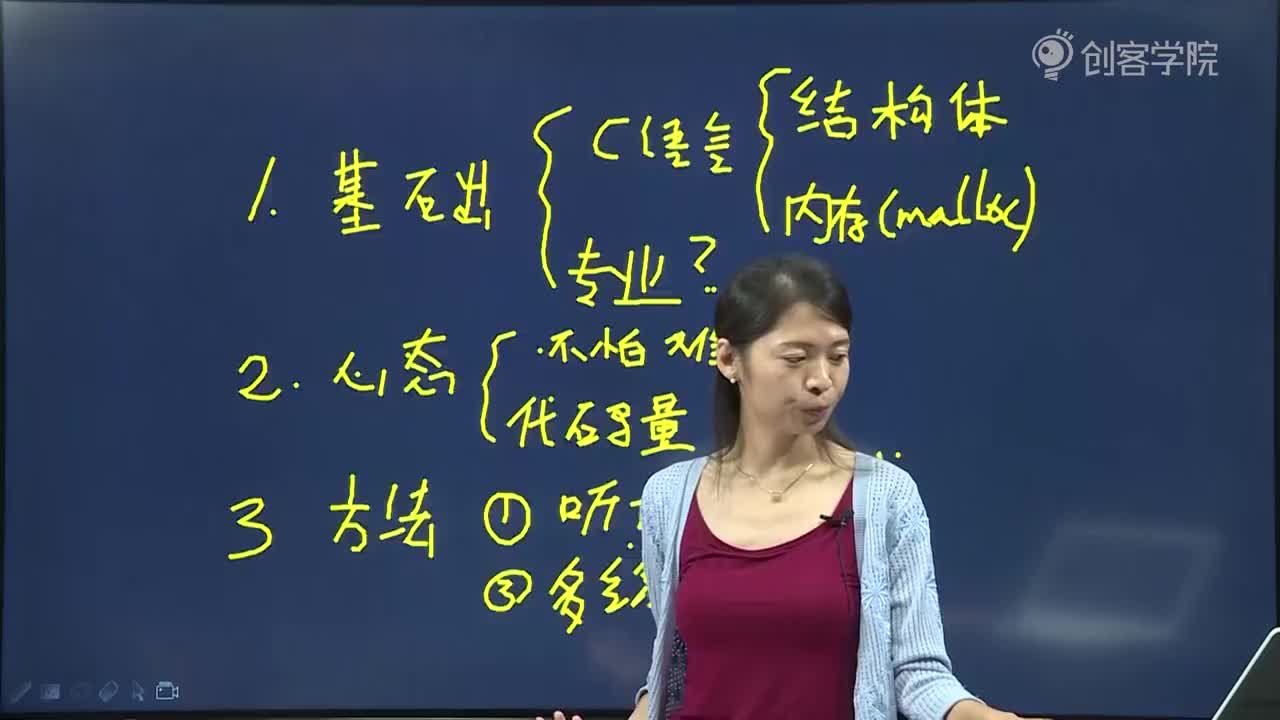 创客学院
1. 基础 { C语言 { 结构体
内存(malloc)
专业?
2. 心态 { ·不怕难
代码量
3 方法 ① 听
③ 多练